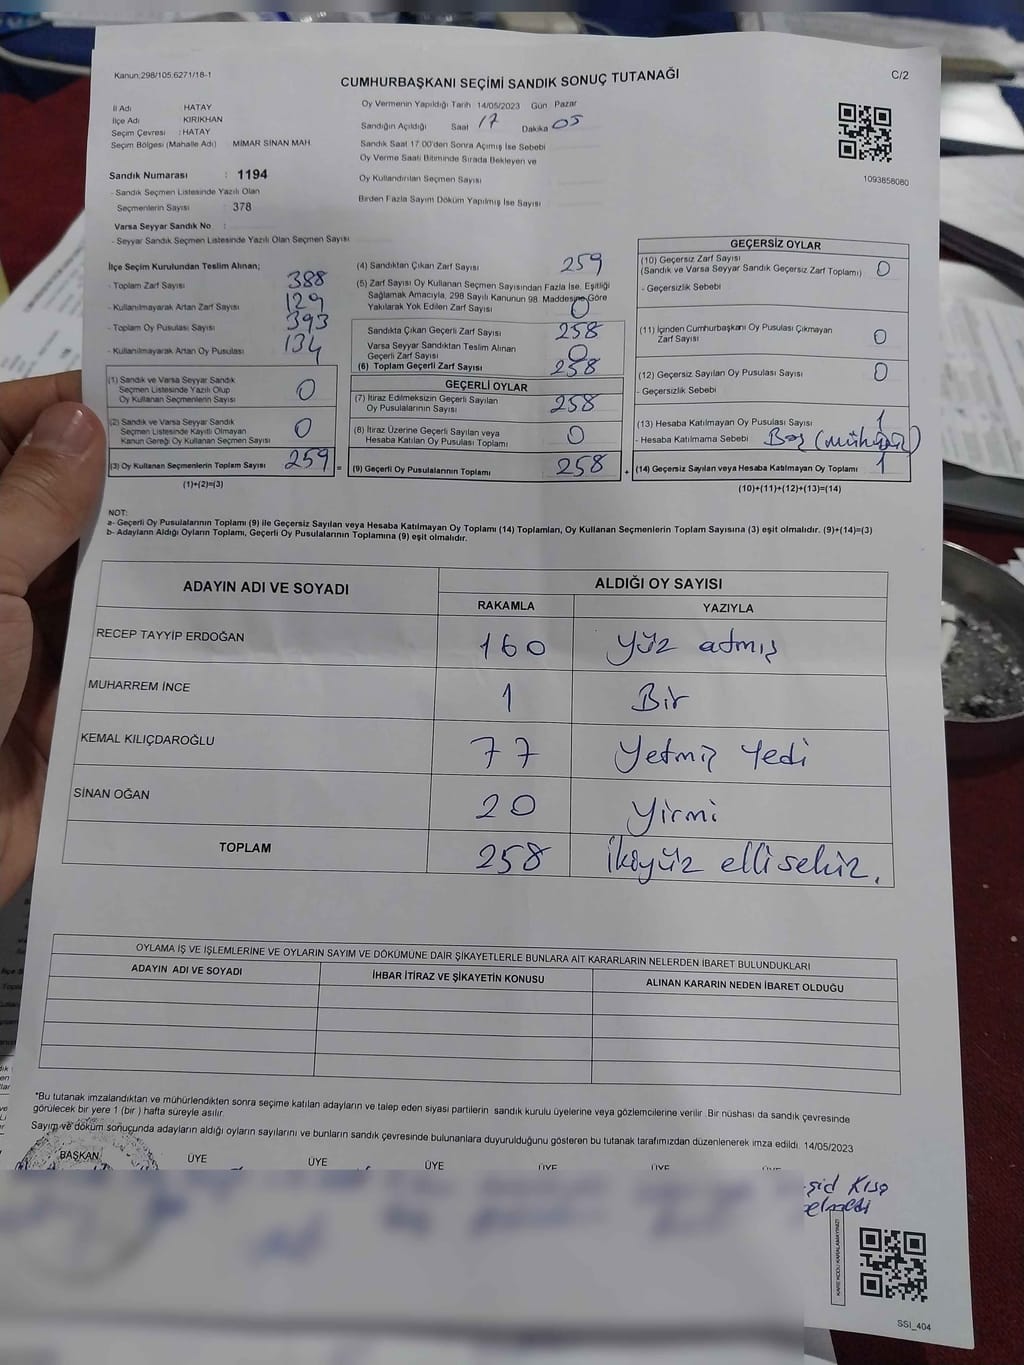 Kanun:298/105.6271/18-1
CUMHURBAŞKANI SEÇİMİ SANDIK SONUÇ TUTANAĞI
C/2
İl Adı HATAY
İlçe Adı KIRIKHAN
Seçim Çevresi : HATAY
Seçim Bölgesi (Mahalle Adı) MİMAR SİNAN MAH.
Sandık Numarası : 1194
- Sandık Seçmen Listesinde Yazılı Olan
Seçmenlerin Sayısı : 378
Varsa Seyyar Sandık No :
- Seyyar Sandık Seçmen Listesinde Yazılı Olan Seçmen Sayısı
Oy Vermenin Yapıldığı Tarih 14/05/2023 Gün Pazar
Sandığın Açıldığı Saat 17 Dakika 05
Sandık Saat 17.00'den Sonra Açımış İse Sebebi
Oy Verme Saati Bitiminde Sırada Bekleyen ve
Oy Kullandırılan Seçmen Sayısı
Birden Fazla Sayım Döküm Yapılmış İse Sayısı
1093858080
İlçe Seçim Kurulundan Teslim Alınan;
- Toplam Zarf Sayısı 388
- Kullanılmayarak Artan Zarf Sayısı 129
- Toplam Oy Pusulası Sayısı 393
- Kullanılmayarak Artan Oy Pusulası 134
(1) Sandık ve Varsa Seyyar Sandık
Seçmen Listesinde Yazılı Olup
Oy Kullanan Seçmenlerin Sayısı 0
(2) Sandık ve Varsa Seyyar Sandık
Seçmen Listesinde Kayıtlı Olmayan
Kanun Gereği Oy Kullanan Seçmen Sayısı 0
(3) Oy Kullanan Seçmenlerin Toplam Sayısı 259 =
(1)+(2)=(3)
(4) Sandıktan Çıkan Zarf Sayısı 259
(5) Zarf Sayısı Oy Kullanan Seçmen Sayısından Fazla İse, Eşitliği
Sağlamak Amacıyla, 298 Sayılı Kanunun 98. Maddesine Göre
Yakılarak Yok Edilen Zarf Sayısı 0
Sandıkta Çıkan Geçerli Zarf Sayısı 258
Varsa Seyyar Sandıktan Teslim Alınan
Geçerli Zarf Sayısı 0
(6) Toplam Geçerli Zarf Sayısı 258
GEÇERLİ OYLAR
(7) İtiraz Edilmeksizin Geçerli Sayılan
Oy Pusulalarının Sayısı 258
(8) İtiraz Üzerine Geçerli Sayılan veya
Hesaba Katılan Oy Pusulası Toplamı 0
(9) Geçerli Oy Pusulalarının Toplamı 258 +
GEÇERSİZ OYLAR
(10) Geçersiz Zarf Sayısı
(Sandık ve Varsa Seyyar Sandık Geçersiz Zarf Toplamı) 0
- Geçersizlik Sebebi
(11) İçinden Cumhurbaşkanı Oy Pusulası Çıkmayan
Zarf Sayısı 0
(12) Geçersiz Sayılan Oy Pusulası Sayısı 0
- Geçersizlik Sebebi
(13) Hesaba Katılmayan Oy Pusulası Sayısı 1
- Hesaba Katılmama Sebebi Boş (mühürsüz)
(14) Geçersiz Sayılan veya Hesaba Katılmayan Oy Toplamı 1
(10)+(11)+(12)+(13)=(14)
NOT:
a- Geçerli Oy Pusulalarının Toplamı (9) ile Geçersiz Sayılan veya Hesaba Katılmayan Oy Toplamı (14) Toplamları, Oy Kullanan Seçmenlerin Toplam Sayısına (3) eşit olmalıdır. (9)+(14)=(3)
b- Adayların Aldığı Oyların Toplamı, Geçerli Oy Pusulalarının Toplamına (9) eşit olmalıdır.
ADAYIN ADI VE SOYADI
ALDIĞI OY SAYISI
RAKAMLA YAZIYLA
RECEP TAYYİP ERDOĞAN 160 Yüz atmış
MUHARREM İNCE 1 Bir
KEMAL KILIÇDAROĞLU 77 Yetmiş Yedi
SİNAN OĞAN 20 Yirmi
TOPLAM 258 İkiyüz ellisekiz.
OYLAMA İŞ VE İŞLEMLERİNE VE OYLARIN SAYIM VE DÖKÜMÜNE DAİR ŞİKAYETLERLE BUNLARA AİT KARARLARIN NELERDEN İBARET BULUNDUKLARI
ADAYIN ADI VE SOYADI İHBAR İTİRAZ VE ŞİKAYETİN KONUSU ALINAN KARARIN NEDEN İBARET OLDUĞU
*Bu tutanak imzalandıktan ve mühürlendikten sonra seçime katılan adayların ve talep eden siyasi partilerin sandık kurulu üyelerine veya gözlemcilerine verilir. Bir nüshası da sandık çevresinde
görülecek bir yere 1 (bir ) hafta süreyle asılır.
Sayım ve döküm sonucunda adayların aldığı oyların sayılarını ve bunların sandık çevresinde bulunanlara duyurulduğunu gösteren bu tutanak tarafımızdan düzenlenerek imza edildi. 14/05/2023
BAŞKAN ÜYE ÜYE ÜYE ÜYE ÜYE ÜYE
KARE KODU KARALAMAYINIZ!
SSI_404